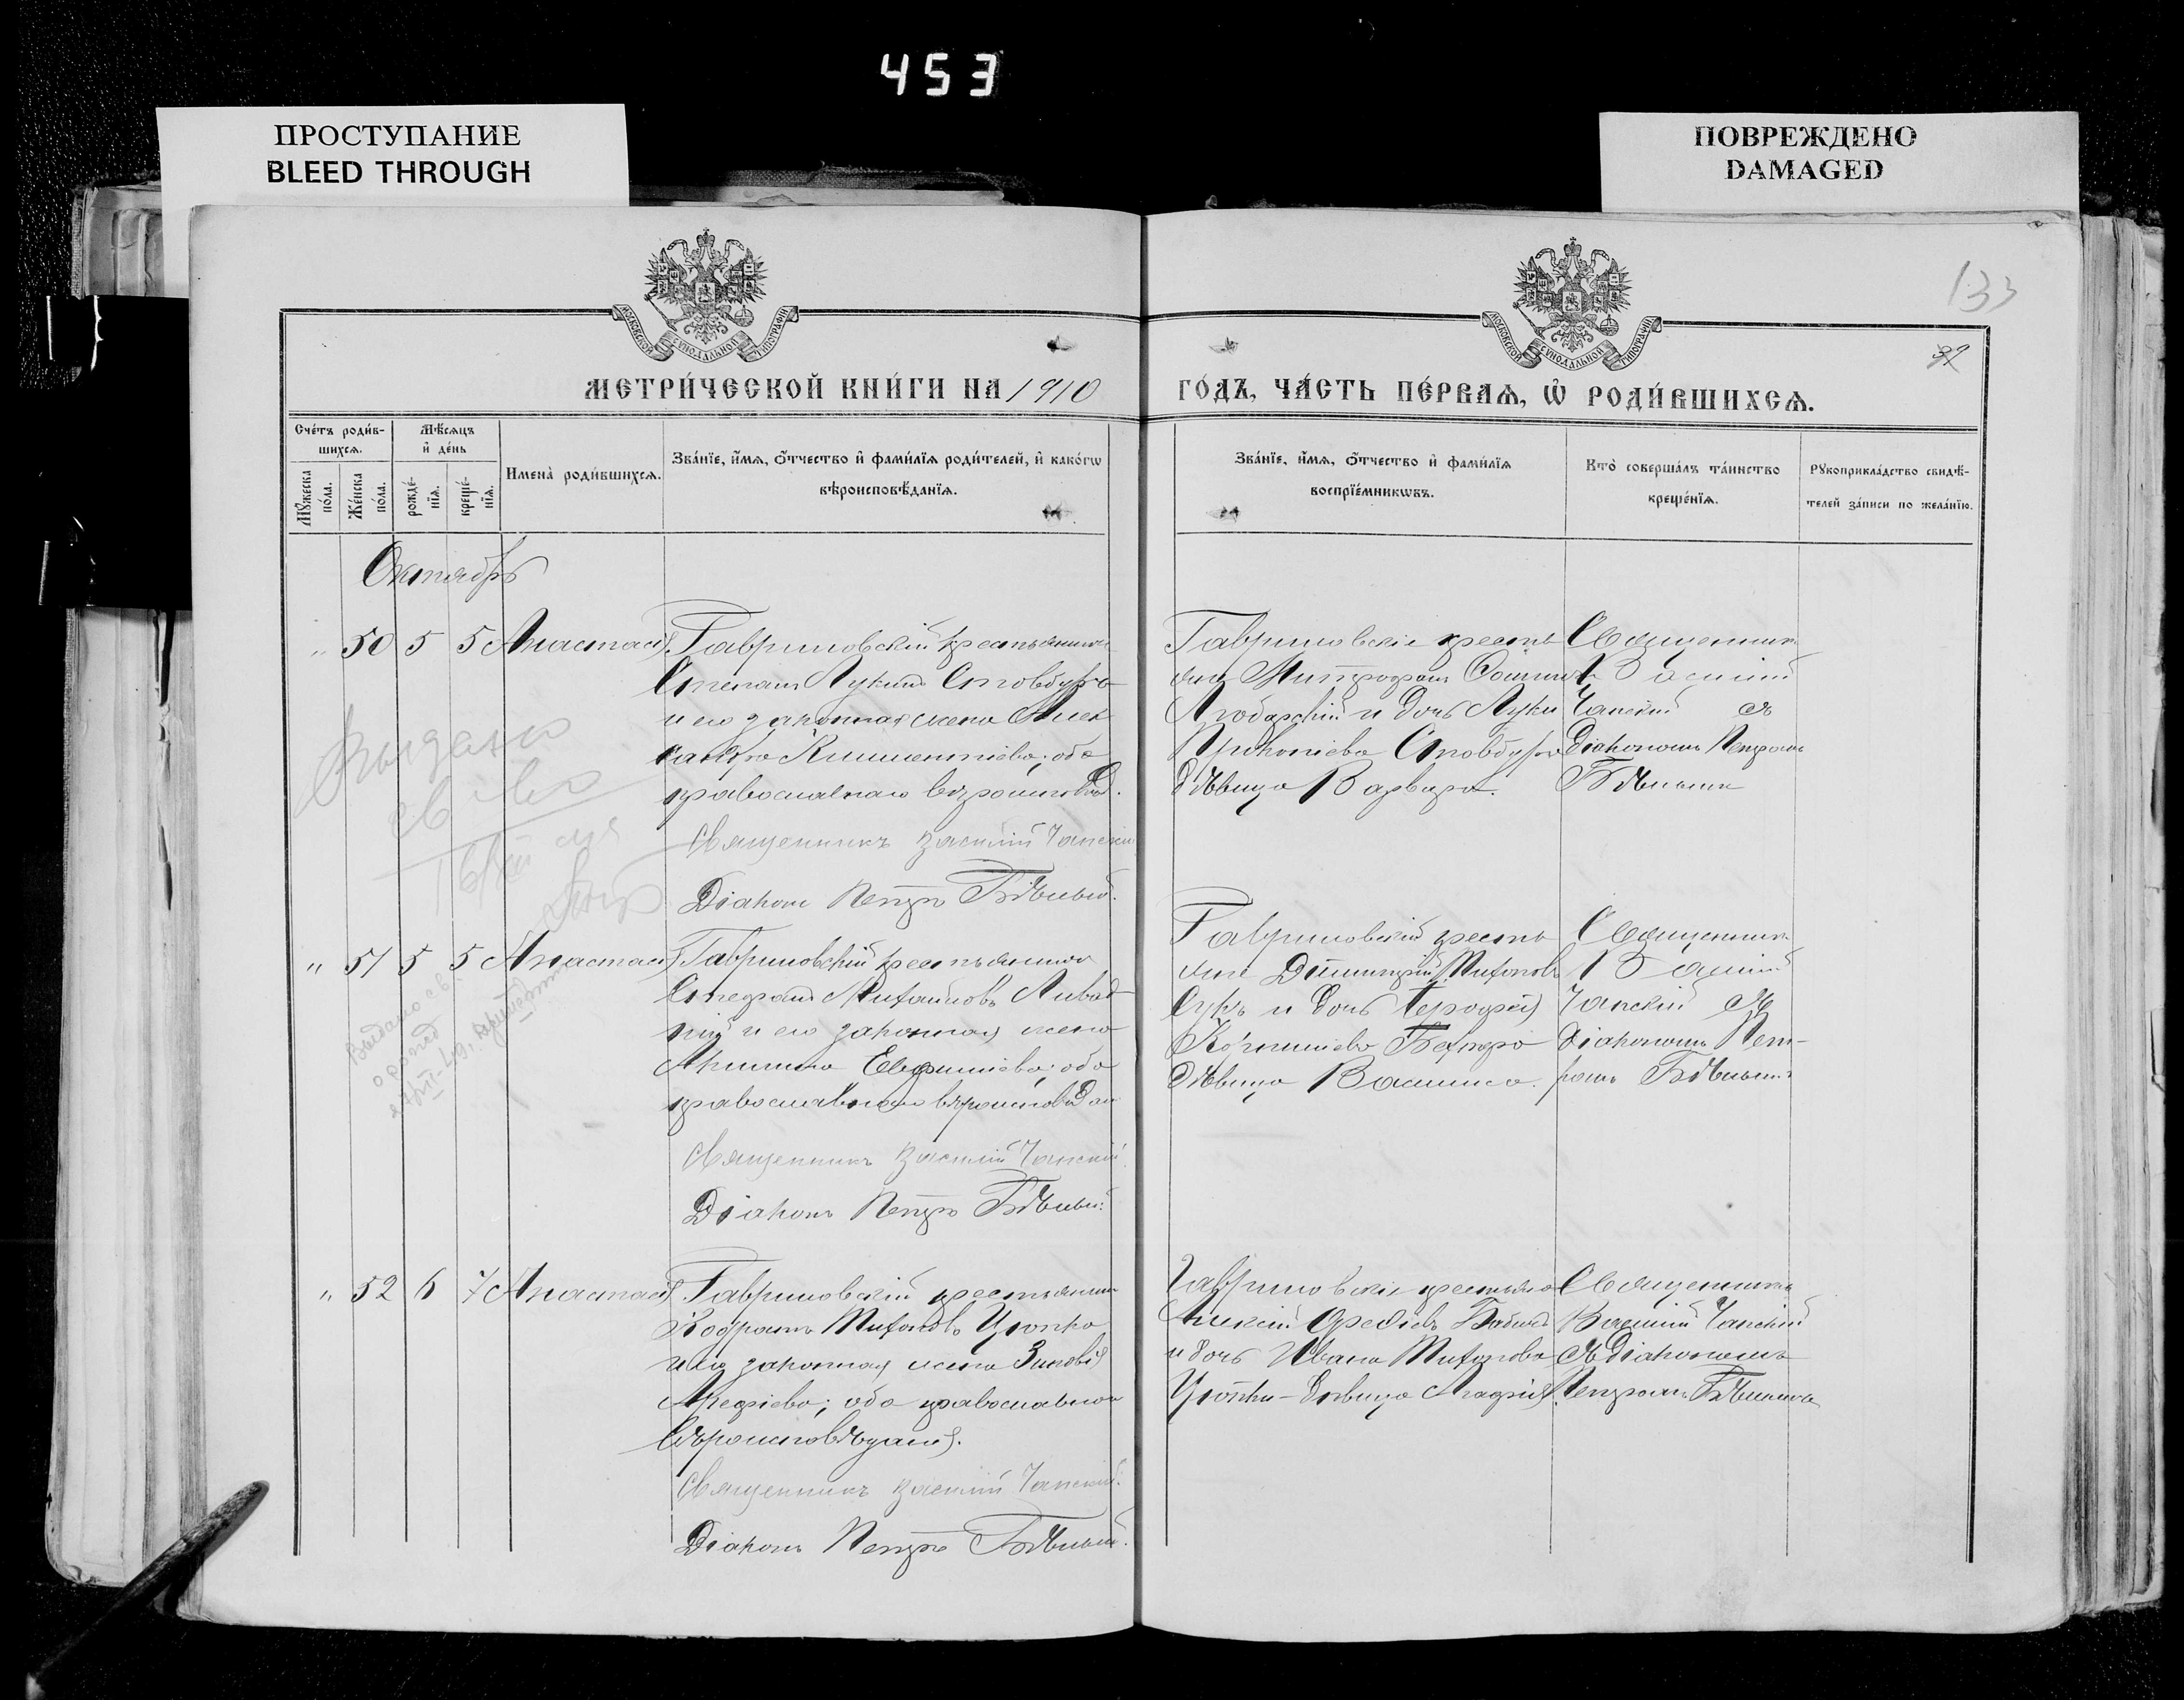 453
ПРОСТУПАНИЕ
BLEED THROUGH
ПОВРЕЖДЕНО
DAMAGED
МОСКОВСКОЙ СѴНОДАЛЬНОЙ ТИПОГРАФІИ
МОСКОВСКОЙ СѴНОДАЛЬНОЙ ТИПОГРАФІИ
133
МЕТРИ́ЧЕСКОЙ КНИ́ГИ НА 1910
ГО́ДЪ, ЧА́СТЬ ПЕ́РВАѦ, Ѡ҆ РОДИ́ВШИХСѦ.
Сче́тъ роди́в-
шихсѧ.
Мꙋ́жеска по́ла.
Же́нска по́ла.
Мѣ́сѧцъ
и҆ де́нь
рожде́-
нїѧ.
креще́-
нїѧ.
Имена̀ роди́вшихсѧ.
Зва́нїе, и҆́мѧ, ѻ҆́тчество и҆ фами́лїѧ роди́телей, и҆ како́гѡ
вѣроисповѣ́данїѧ.
Зва́нїе, и҆́мѧ, ѻ҆́тчество и҆ фами́лїѧ
воспрїе́мникѡвъ.
Кто̀ соверша́лъ та́инство
креще́нїѧ.
Рꙋкоприкла́дство свидѣ́-
телей за́писи по жела́нїю.
Октябрь
" 50 5 5 Анастасія
Гавриловскій крестьянинъ
Степанъ Лукинъ Стовбуръ
и его законная жена Алек
сандра Климентіева; оба
православнаго вѣроисповѣд.
Священникъ Василій Чапскій
Діаконъ Петръ Бѣлый.
Гавриловскіе кресть
яне Митрофанъ
и дочь Луки
Прокопіева Стовбура
дѣвица Варвара.
Священникъ
Василій
Чапскій съ
Діакономъ Петромъ
Бѣлымъ
Выдано
" 51 5 5 Анастасія
Гавриловскій крестьянинъ
Стефанъ Михайловъ Ливад
ній и его законная жена
Акилина Евфиміева; оба
православнаго вѣроисповѣдан
Священникъ Василій Чапскій.
Діаконъ Петръ Бѣлый.
Гавриловскій кресть
яне Димитрій Тихоновъ
и дочь Іерофея
дѣвица Василиса.
Священникъ
Василій
Чапскій съ
діакономъ Пет-
ромъ Бѣлымъ
Выдано св.
" 52 6 7 Анастасія
Гавриловскій крестьянинъ
Кодратъ Тихоновъ Цюпка
и его законная жена Зиновія
Арефіева; оба православнаго
вѣроисповѣданія.
Священникъ Василій Чапскій.
Діаконъ Петръ Бѣлый.
Гавриловскіе крестьяне
Алексій
и дочь Ивана Тихонова
Цюпки - дѣвица Агафія.
Священникъ
Василій Чапскій
съ Діакономъ
Петромъ Бѣлымъ